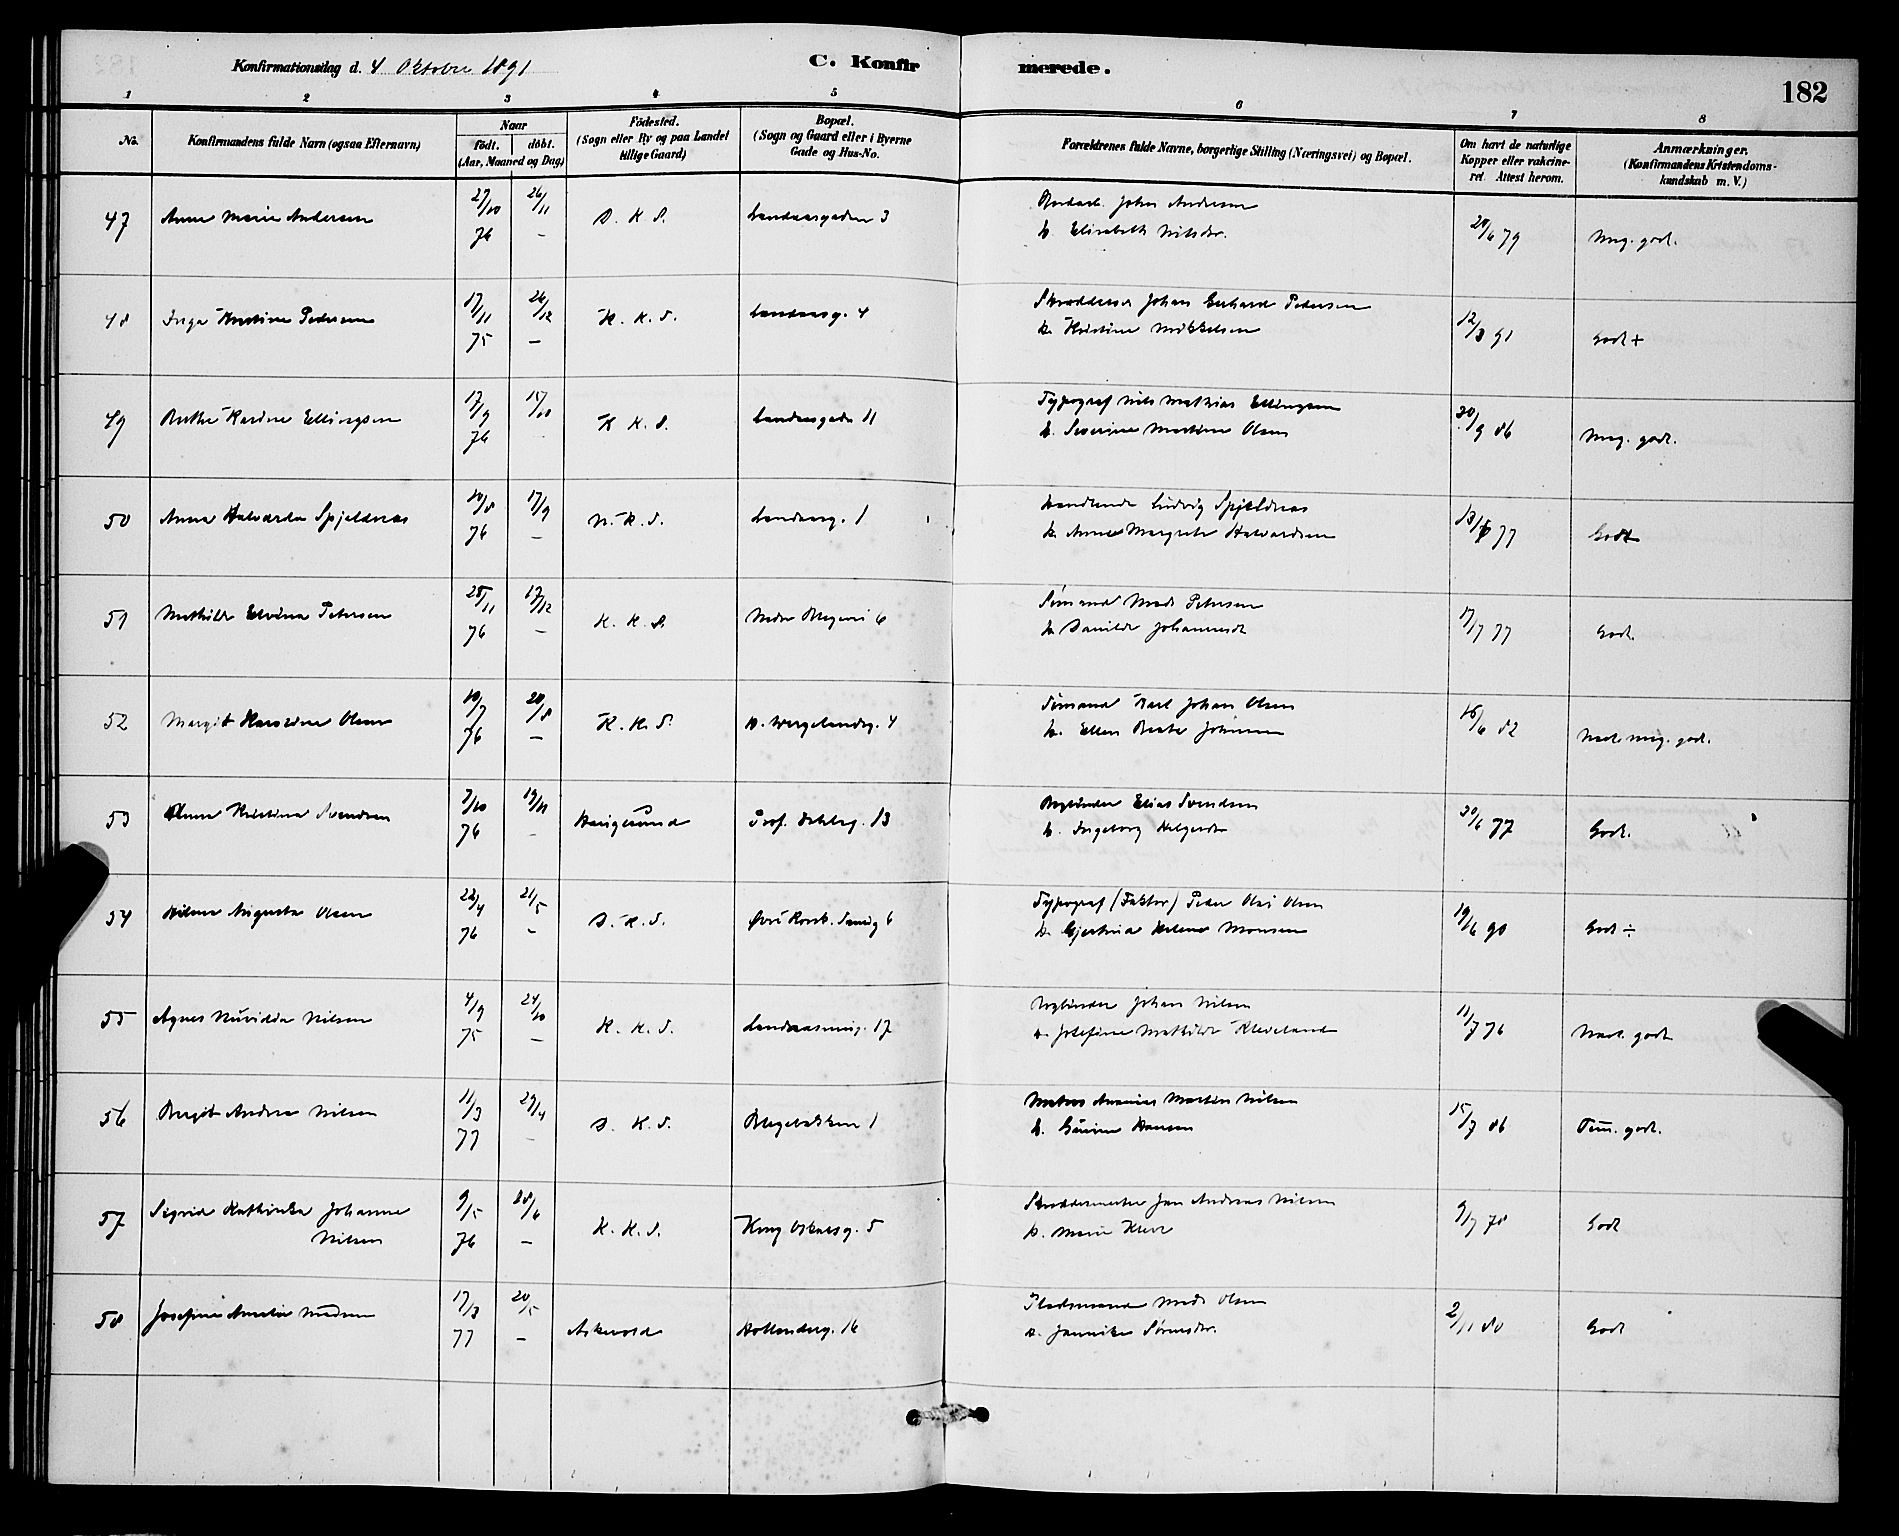 Konfirmationsdag d. 4 Oktober 1891
C. Konfirmerede.
182
1 2 3 4 5 6 7 8
No.
Konfirmandens fulde Navn (ogsaa Efternavn)
Naar
födt. döbt.
(Aar, Maaned og Dag)
Födested.
(Sogn eller By og paa Landet
tillige Gaard)
Bopæl.
(Sogn og Gaard eller i Byerne
Gade og Hus-No.
Forældrenes fulde Navne, borgerlige Stilling (Næringsvei) og Bopæl.
Om havt de naturlige
Kopper eller vakcine-
ret. Attest herom.
Anmærkninger.
(Konfirmandens Kristendoms-
kundskab m. V.)
47 Anna Marie Andersen 27/10 76 26/11 – D. K. S. Landaasgaden 3 Johan Andersen
h. Elisabeth Nilsdr. 79 Meg. godt.
48 Inga Kristine Pedersen 17/11 75 26/12 – K. K. S. Landaasg. 4 Johan Gerhard Pedersen
h. Kristine Mikkelsen 12/3 91 Godt +
49 Karine Ellingsen 17/9 76 15/10 K. K. S. Landaasgaden 11 Typograf Nils Mathias Ellingsen
h. Severine Martine Olsen 30/9 86 Meg. godt.
50 Anna Halvarda Spjeldnæs 10/8 76 17/9 – N. K. S. Landaasg. 1 Handlende Ludvig Spjeldnæs
h. Anne Margrete Halvardsen 77 Godt
51 Mathilde Elvina Petersen 25/11 76 17/12 – K. K. S. Nedre Blegevei 6 Sømand Mads Petersen
h. Danilde Johannesdr 17/7 77 Godt.
52 Margit Olsen 10/7 76 20/8 – K. K. S. H. Wergelandsg. 4 Sømand Karl Johan Olsen
h. Ellen Beate Johnsen 16/6 82 Næst. meg. godt.
53 Anna Kristina Svendsen 7/10 76 19/11 – Haugesund Prof. Dahlsg. 13 Elias Svendsen
h. Ingeborg Helgesdr 30/6 77 Godt.
54 Augusta Olsen 22/4 76 21/5 – D. K. S. Øvre Korsk. 6 Typograf (Faktor) Peder Olai Olsen
h. Gjertrud Helene Monsen 19/6 90 Godt ÷
55 Agnes Nilsen 4/9 75 24/10 – K. K. S. Landaassmug. 17 Johan Nilsen
h. Josefine Mathilde Kleveland 11/7 76 Næst. godt
56 Bergit Andrea Nilsen 11/3 77 29/4 – D. K. S. Blegebakken 1 Ananias Martin Nilsen
h. Gurine Hansen 15/7 86 Tem. godt.
57 Sigrid Kathinka Johanne
Nilsen 9/5 76 – K. K. S. Kong Oskarsg. 5 Skræddermester Jan Andreas Nilsen
h. Marie 9/7 78 Godt
58 Josefine Amalie Madsen 17/3 77 20/5 – Askevold Hollenderg. 16 Pladsmand Mads Olsen
h. Jannike Sørensdr. 2/11 80 Godt